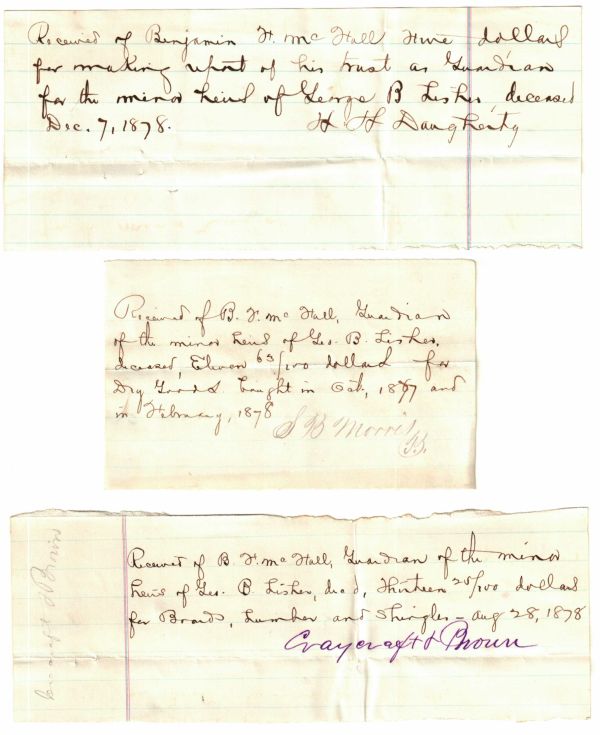 Received of Benjamin F. McHall Five dollars
for making report of his trust as Guardian
for the minor heirs of George B Lisher, deceased
Dec. 7, 1878.
H H Daugherty
Received of B. F. McHall, Guardian
of the minor heirs of Geo. B. Lisher,
deceased, Eleven 63/100 dollars for
Dry Goods bought in Oct, 1877 and
in February, 1878
S B Morris
Received of B. F. McHall, Guardian of the minor
heirs of Geo. B. Lisher, dec'd, Thirteen 25/100 dollars
for Boards, Lumber and Shingles - Aug 28, 1878
Craycraft & Brown
Craycraft & Brown